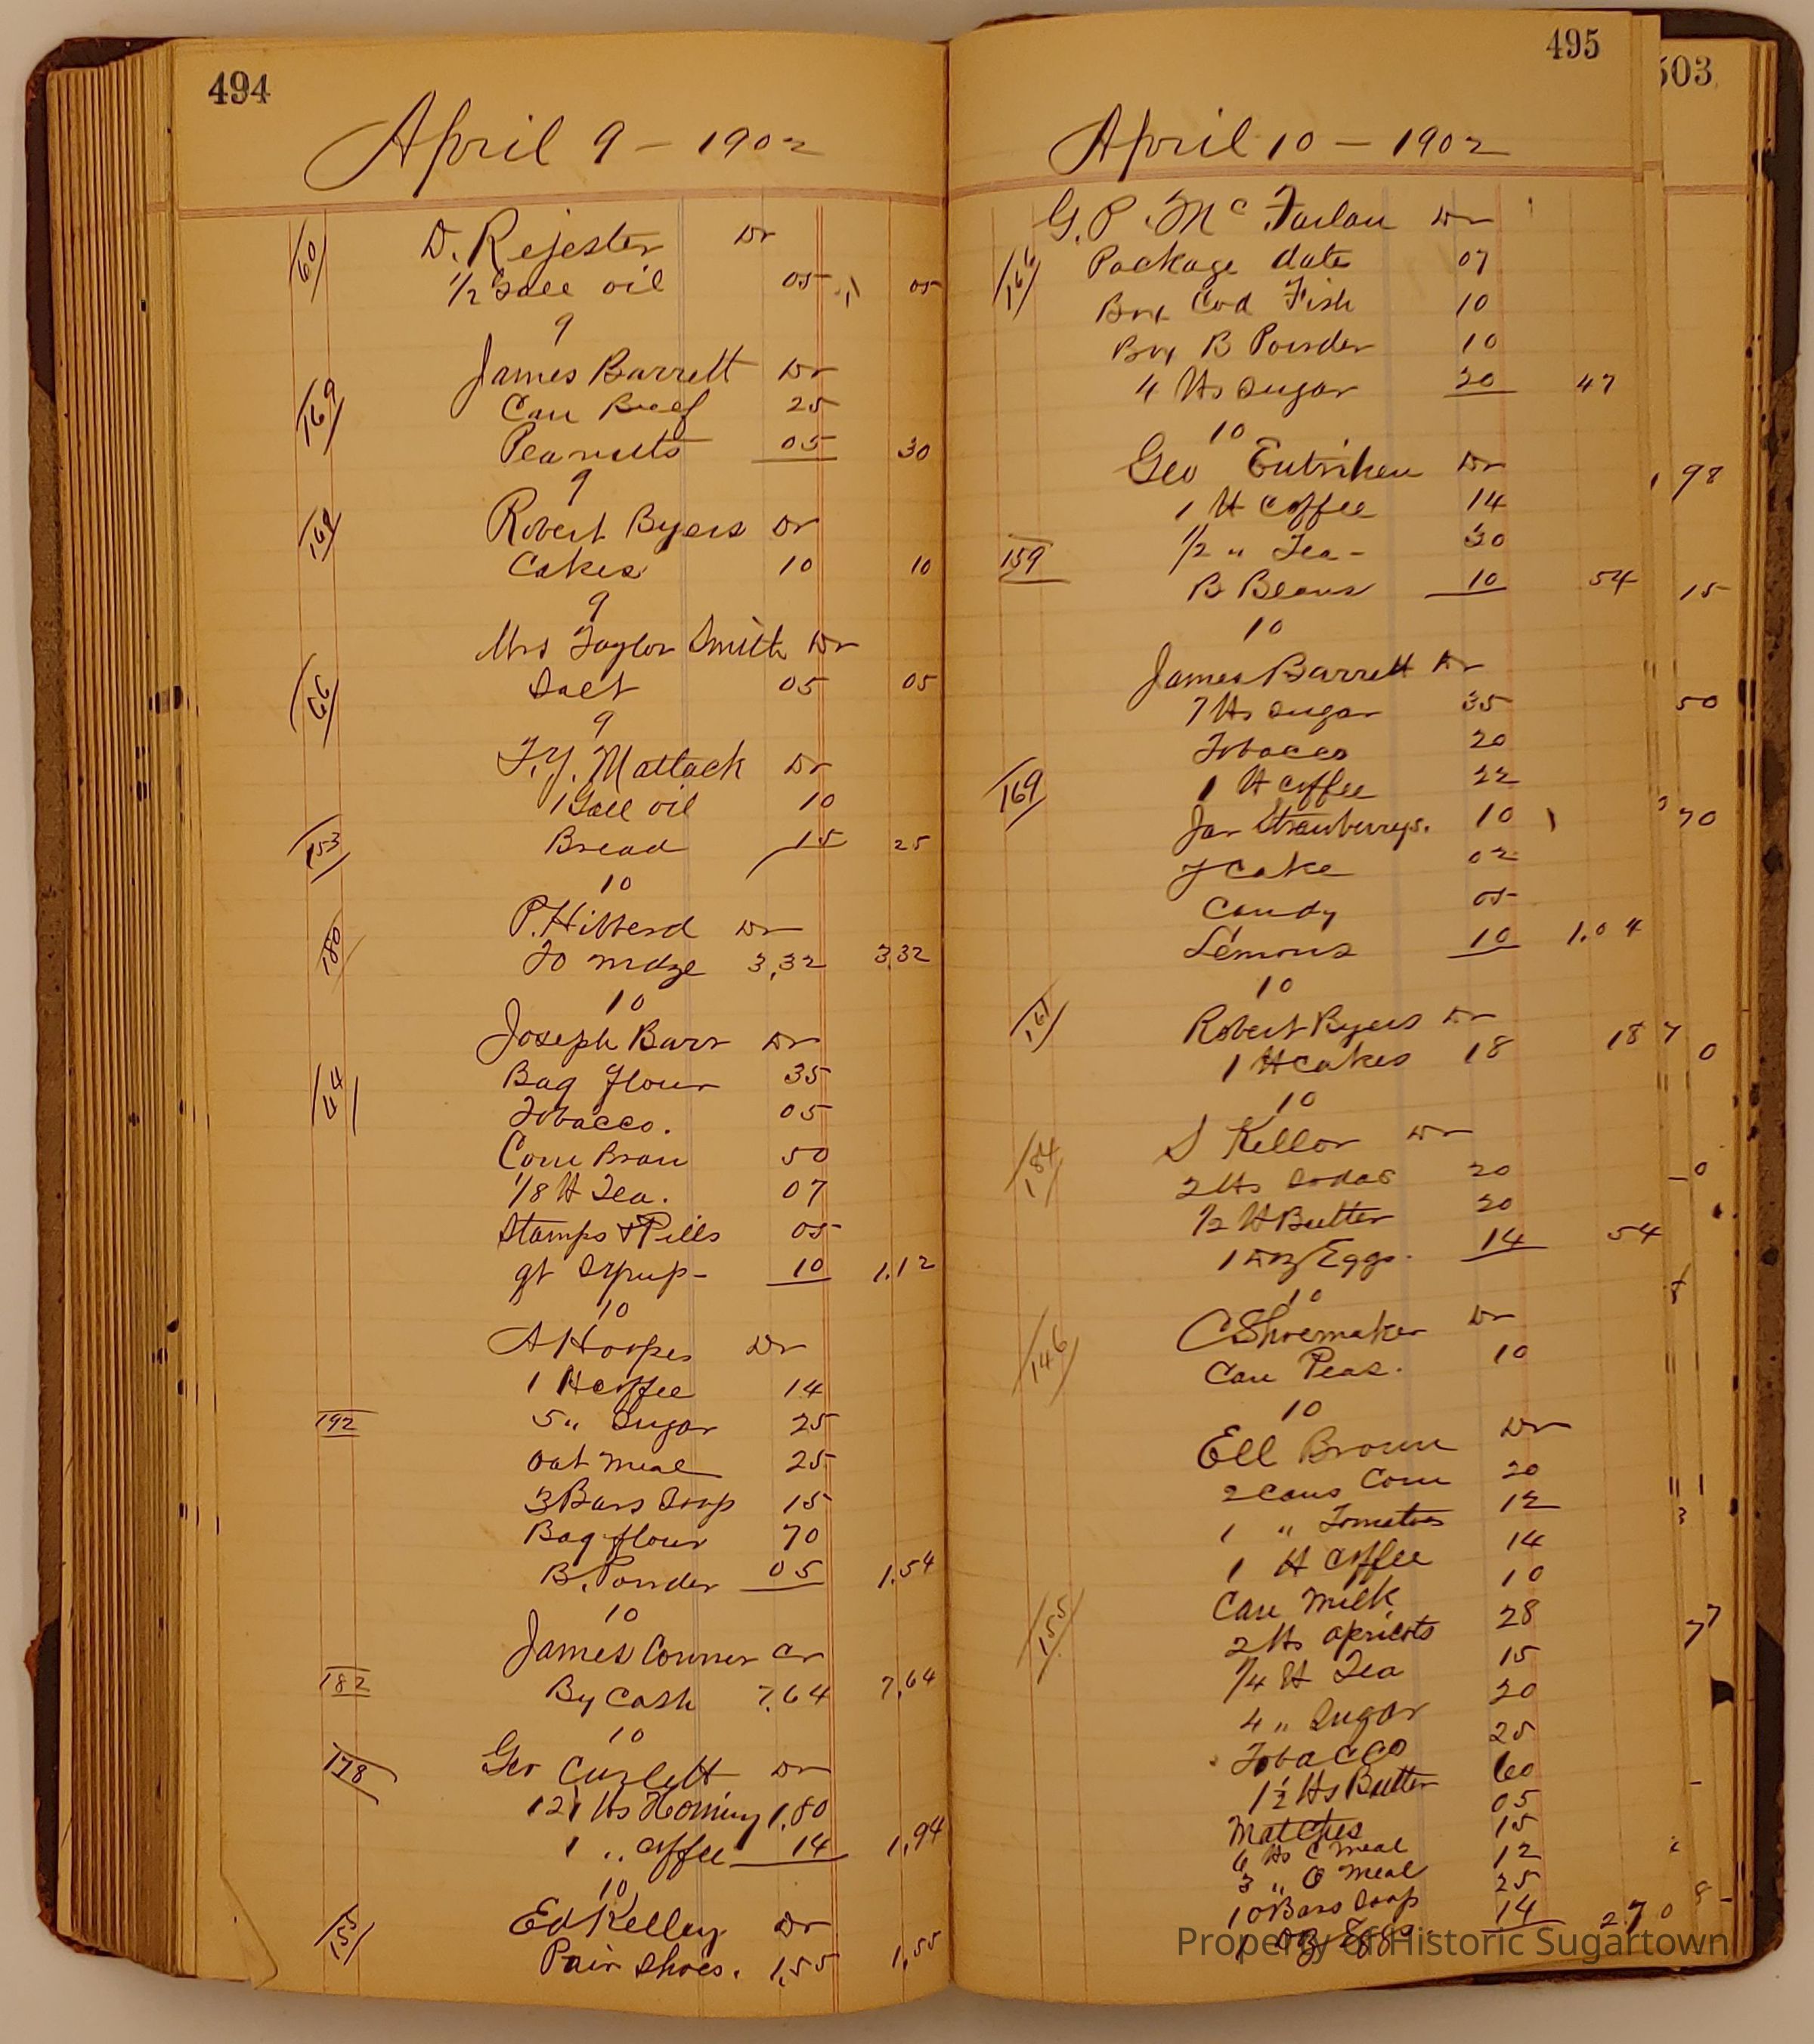 494
April 9 – 1902
60
D. Rejester Dr
1/2 Gall oil 05 05
9
James Barrett Dr
169
Can Beef 25
Peanutts 05 30
9
Robert Byers Dr
Cakes 10 10
9
Mrs Taylor Smith Dr
66
Salt 05 05
9
F.Y. Mattack Dr
1 Gall oil 10
153
Bread 15 25
10
P. Hibberd Dr
180
To mdze 3,32 3,32
10
Joseph Barr Dr
Bag flour 35
Tobacco. 05
Corn Bran 50
1/8 lb Tea. 07
Stamps & Pills 05
qt Syrup – 10 1.12
10
A Hoopes Dr
1 lb coffee 14
192
5 " Sugar 25
oat meal 25
3 Bars Soap 15
Bag flour 70
B. Powder 05 1.54
10
James Conner Cr
182
By Cash 7.64 7.64
10
178
Geo Cuzlett Dr
121 lbs Hominy 1.80
1 " coffee 14 1.94
10
Ed Kelley Dr
155
Pair Shoes. 1,55 1,55
495
April 10 – 1902
G. P. McFarlan Dr
166
Package date 07
Box Cod Fish 10
Box B Powder 10
4 lbs Sugar 20 47
10
Geo Entriken Dr
1 lb coffee 14
159
1/2 " Tea – 30
B Beans 10 54
10
James Barrett Dr
7 lbs Sugar 35
Tobacco 20
169
1 lb coffee 22
Jar Strawberrys. 10
Y Cake 02
Candy 05
Lemons 10 1.04
10
161
Robert Byers Dr
1 lb cakes 18 18
10
184
S Kellor Dr
2 lbs Sodas 20
1/2 lb Butter 20
1 Doz Eggs. 14 54
10
146
C Shoemaker Dr
Can Peas. 10
10
Ell Brown Dr
2 cans Corn 20
1 " Tometoes 12
1 lb coffee 14
Can milk 10
155
2 lbs apricots 28
1/4 lb Tea 15
4 " Sugar 20
Tobacco 25
1 1/2 lbs Butter 60
Matches 05
6 lbs C meal 15
3 " O meal 12
10 Bars Soap 25
1 Doz Eggs 14 2.70
503
98
15
50
70
Property of Historic Sugartown